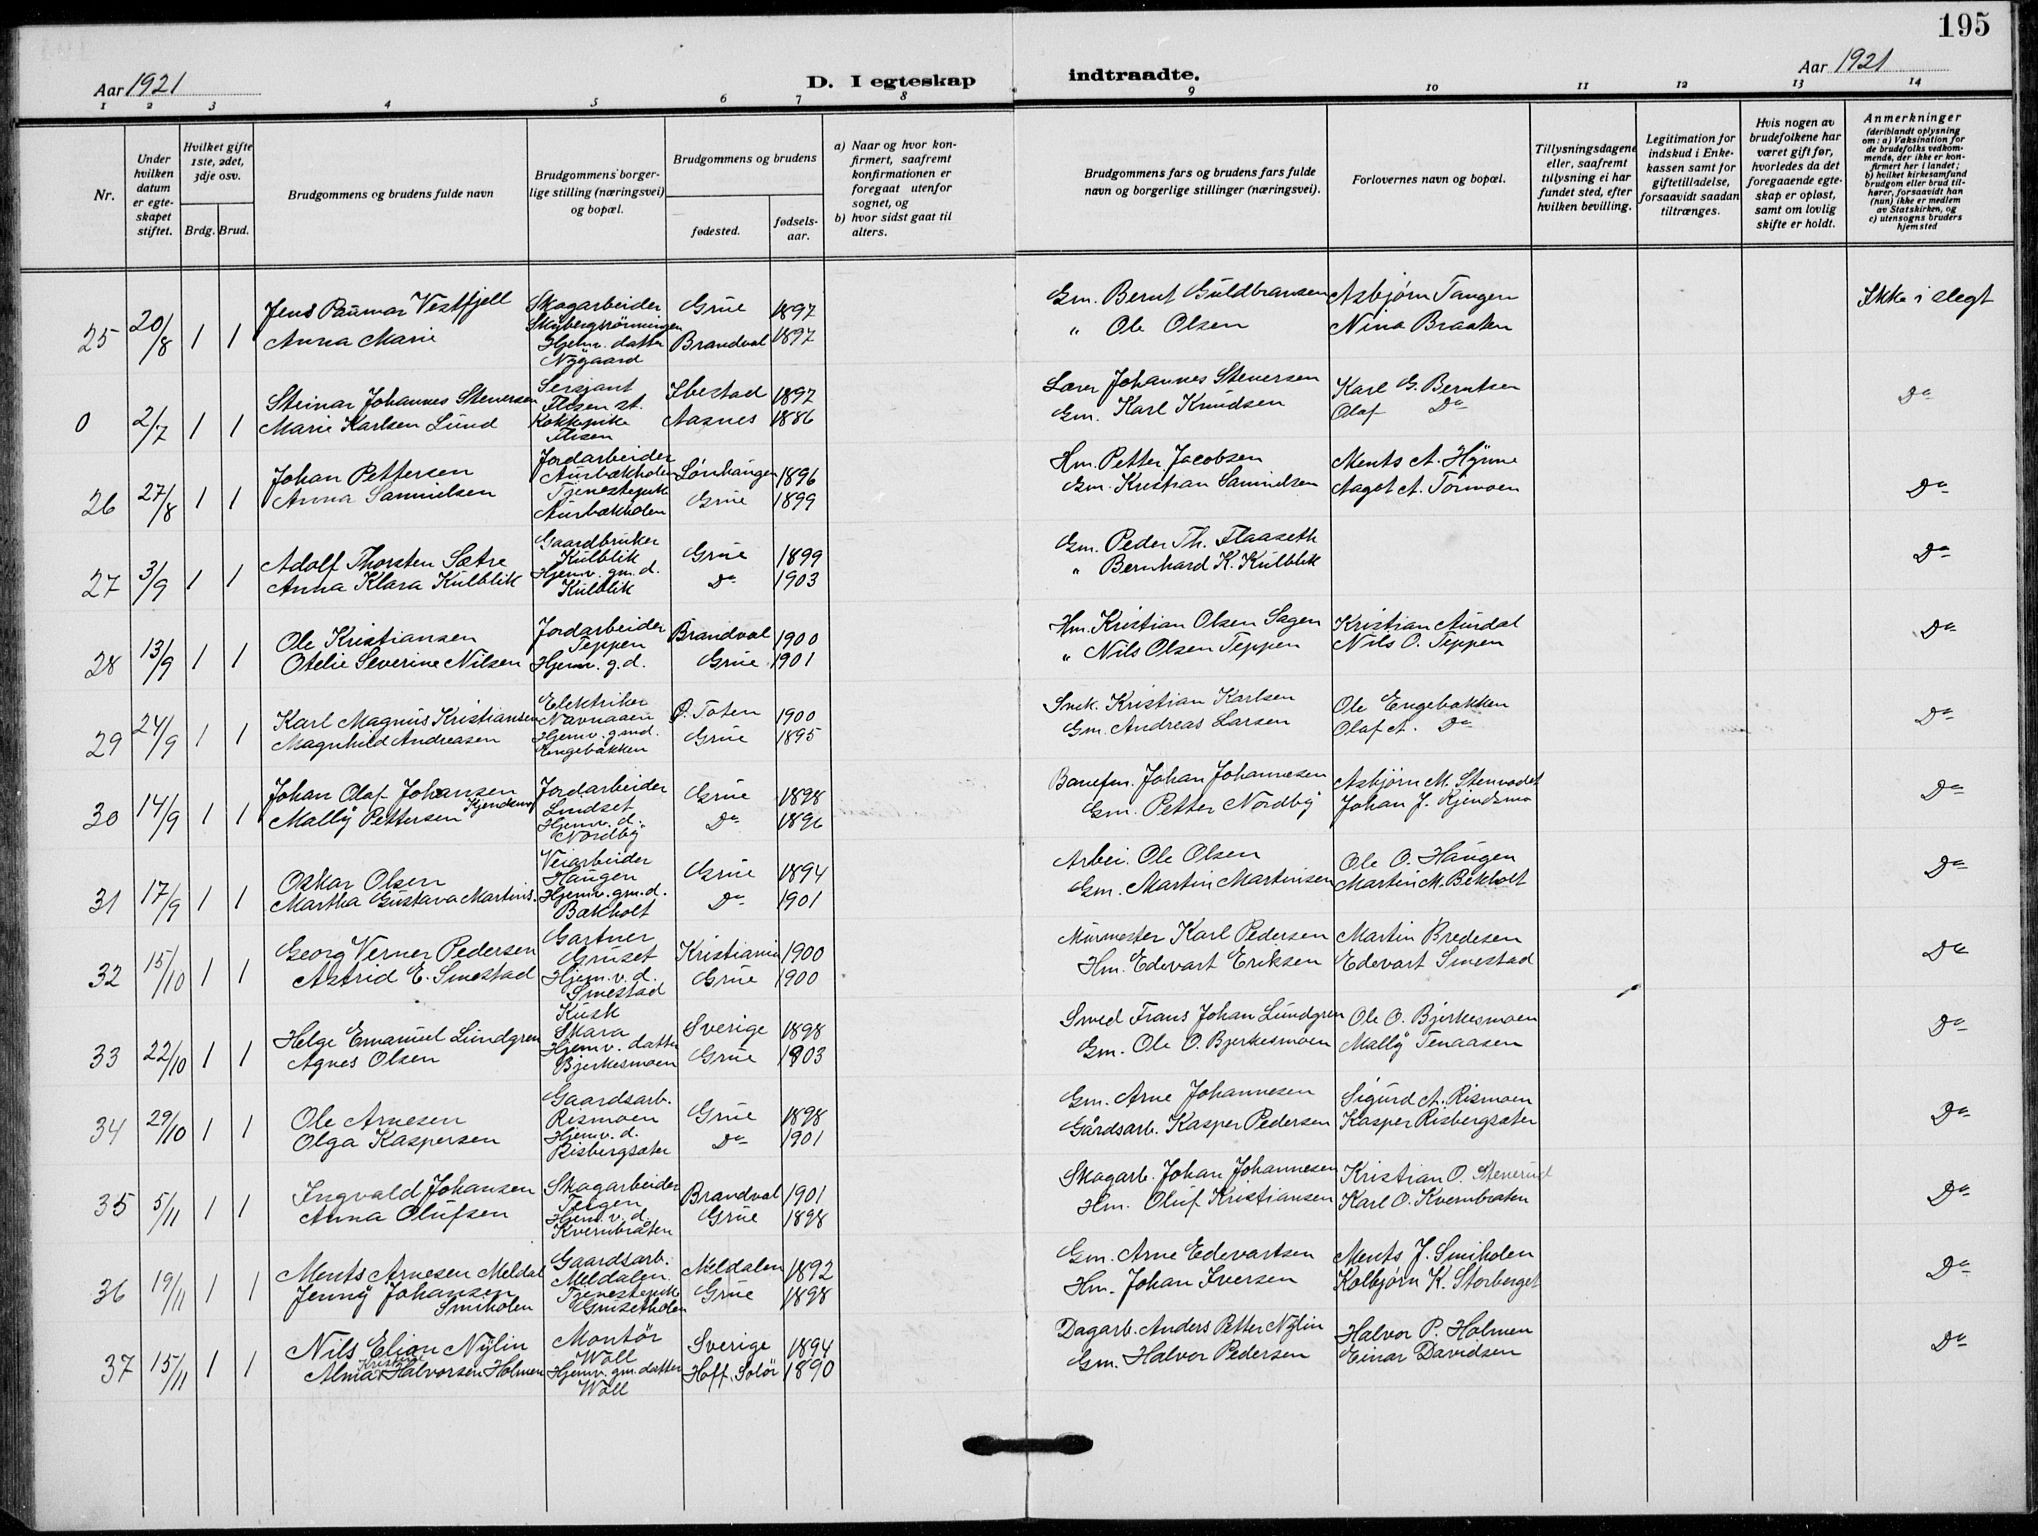 195
Aar 1921
D. I egteskap indtraadte.
Aar 1921
1 2 3 4 5 6 7 8 9 10 11 12 13 14
Nr.
Under hvilken datum er egteskapet stiftet.
Hvilket gifte 1ste, 2det, 3dje osv.
Brdg. Brud.
Brudgommens og brudens fulde navn
Brudgommens borgerlige stilling (næringsvei) og bopæl.
Brudgommens og brudens
fødested.
fødselsaar.
a) Naar og hvor konfirmert, saafremt konfirmationen er foregaat utenfor sognet, og
b) hvor sidst gaat til alters.
Brudgommens fars og brudens fars fulde navn og borgerlige stillinger (næringsvei).
Forlovernes navn og bopæl.
Tillysningsdagene eller, saafremt tillysning ei har fundet sted, efter hvilken bevilling.
Legitimation for indskud i Enkekassen samt for giftetilladelse, forsaavidt saadan tiltrænges.
Hvis nogen av brudefolkene har været gift før, hvorledes da det foregaaende egteskap er opløst, samt om lovlig skifte er holdt.
Anmerkninger
(deriblandt oplysning om: a) Vaksination for de brudefolks vedkommende, der ikke er konfirmert her i landet; b) hvilket kirkesamfund brudgom eller brud tilhører, forsaavidt han (hun) ikke er medlem av Statskirken, og c) utensogns bruders hjemsted
25 20/8 1 1 Jens Paumar Vestfjell Skogarbeider Skybergsrönningen Grue 1897 Gm. Bernt Guldbransen Asbjørn Tangen Ikke i slegt
Anna Marie Hjemv. datter Nygaard Brandval 1897 " Ole Olsen Nina Braaten
0 2/7 1 1 Steinar Johannes Stenersen Sersjant Flisen st. Ibestad 1897 Lærer Johannes Stenersen Karl G. Berntsen Do
Marie Karlsen Lund Kokkepike Flisen Aasnes 1886 Gm. Karl Knudsen Olaf Do
26 27/8 1 1 Johan Pettersen Jordarbeider Aurbækholen 1896 Hm. Petter Jacobsen Ments A. Hynne Do
Anna Samuelsen Tjenestepik Aurbækholen Grue 1899 Gm. Kristian Samuelsen Aagot A. Tormoen
27 3/9 1 1 Adolf Thorsten Sætre Gaardbruker Kulblik Grue 1899 Gm. Peder Th. Flaaseth Do
Anna Klara Kulblik Hjemv. gm. d. Kulblik Do 1903 " Bernhard K. Kulblik
28 13/9 1 1 Ole Kristiansen Jordarbeider Teppen Brandval 1900 Hm. Kristian Olsen Sagen Kristian Aurdal Do
Otelie Severine Nilsen Hjemv. g. d. Grue 1901 " Nils Olsen Teppen Nils O. Teppen
29 24/9 1 1 Karl Magnus Kristiansen Elektriker Navnaaen Ø. Toten 1900 Snek. Kristian Karlsen Ole Engebakken Do
Magnhild Andreasen Hjemv. gmd. Engebakken Grue 1895 Gm. Andreas Larsen Olaf A. Do
30 14/9 1 1 Johan Olaf Johansen Kjendsmo Jordarbeider Lindset Grue 1898 Banefm. Johan Johannesen Asbjørn M. Stenvadet Do
Mally Pettersen Hjemv. d. Nordby Do 1896 Gm. Petter Nordby Johan J. Kjendsmo
31 17/9 1 1 Oskar Olsen Veiarbeider Haugen Grue 1894 Arbei. Ole Olsen Ole O. Haugen Do
Martha Gustava Martins. Hjemv. gm. d. Bækholt Do 1901 Gm. Martin Martinsen Martin M. Bekholt
32 15/10 1 1 Georg Verner Pedersen Gartner Gruset Kristiania 1900 Murmester Karl Pedersen Martin Bredesen Do
Astrid E. Smestad Hjem. v. d. Smestad Grue 1900 Hm. Edevart Eriksen Edevart Smestad
33 22/10 1 1 Helge Emanuel Lundgren Kusk Skara Sverige 1898 Smed Frans Johan Lundgren Ole O. Bjerkesmoen Do
Agnes Olsen Hjemv. datter Bjerkesmoen Grue 1903 Gm. Ole O. Bjerkesmoen Mally Tenaasen
34 29/10 1 1 Ole Arnesen Gaardsarb. Rismoen Grue 1898 Gm. Arne Johannesen Sigurd A. Rismoen Do
Olga Kaspersen Hjemv. d. Risbergsæter Do 1901 Gårdsarb. Kasper Pedersen Kasper Risbergsæter
35 5/11 1 1 Ingvald Johansen Skogarbeider Teigen Brandval 1901 Skogarb. Johan Johannesen Kristian O. Stenerud Do
Anna Olufsen Hjem. v. d. Kvernbråten Grue 1898 Hm. Oluf Kristiansen Karl O. Kvernbraten
36 19/11 1 1 Ments Arnesen Meldal Gaardsarb. Meldalen Meldalen 1892 Gm. Arne Edevartsen Ments J. Smiholen Do
Jenny Johansen Smiholen Tjenestepik Grusetholen Grue 1898 Hm. Johan Iversen Kolbjørn K. Storberget
37 15/11 1 1 Nils Elian Nylin Montör Woll Sverige 1894 Dagarb. Anders Petter Nylin Halvor P. Holmen Do
Alma Kristine Halvorsen Holmen Hjemv. gm. datter Woll Hoff, Solör 1890 Gm. Halvor Pedersen Einar Davidsen